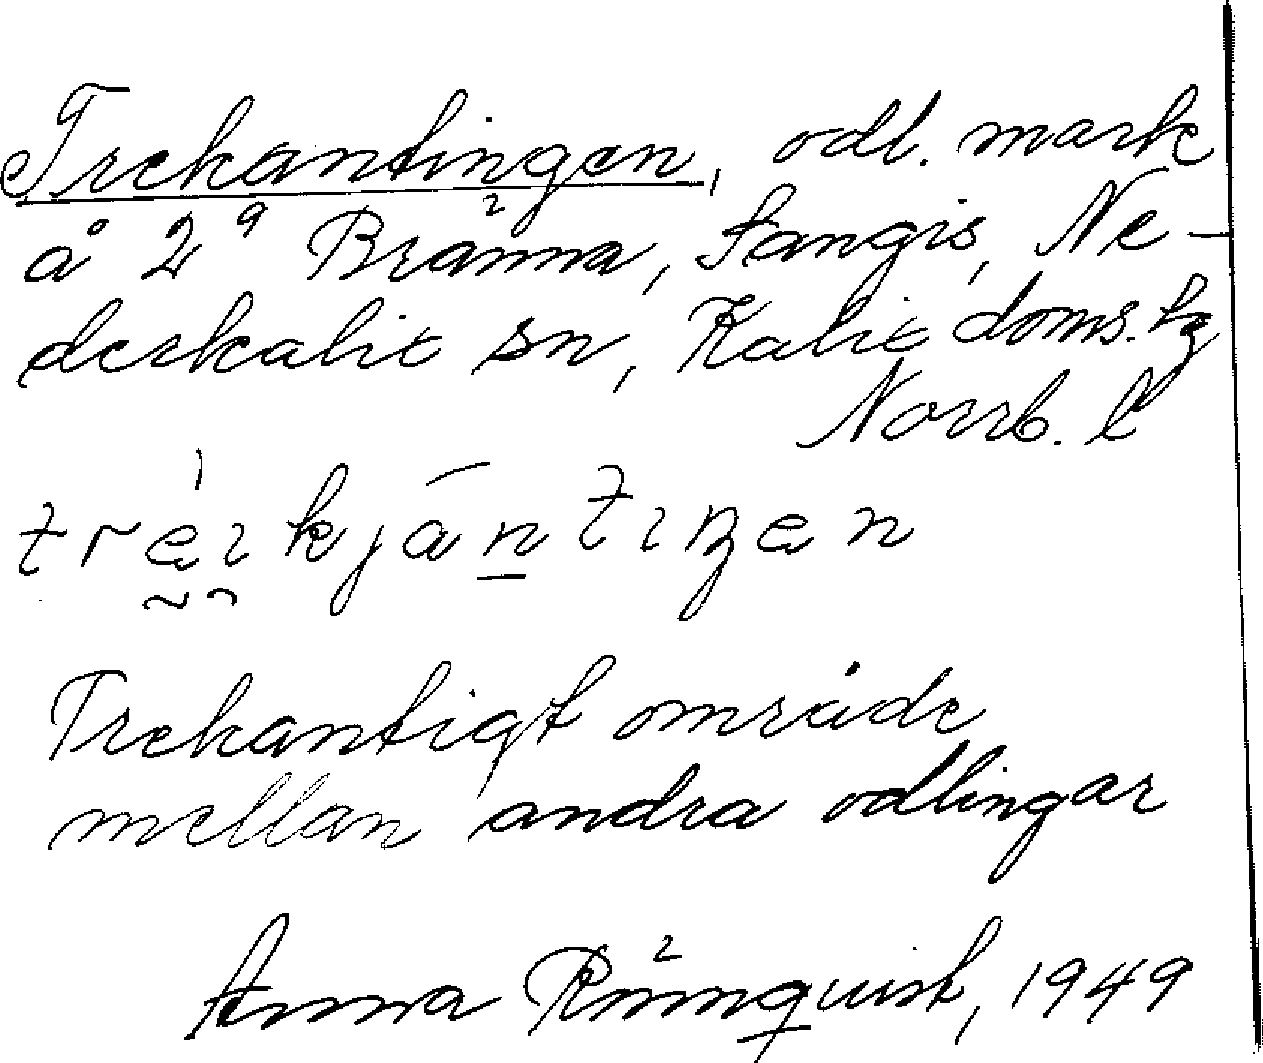 Trekantingen, odl. mark
å 2⁹ Bränna, Sangis, Ne-
derkalix sn, Kalix doms. tg
Norrb. l
Trekantigt område
mellan andra odlingar
Anna Rönnquist, 1949